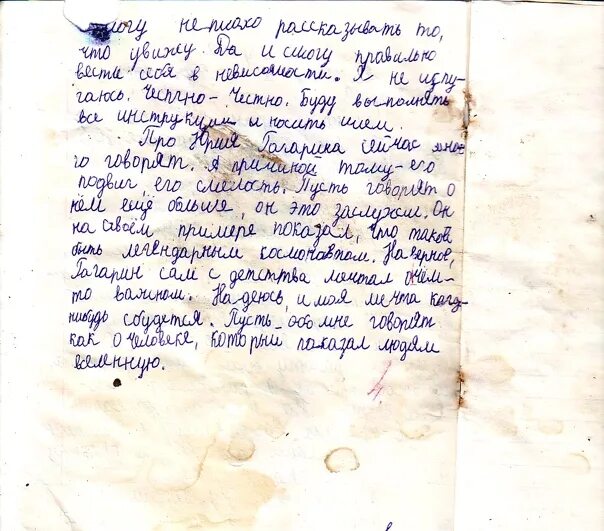 смогу неплохо рассказывать то,
что увижу. Да и смогу правильно
вести себя в невисомости. Я не испу-
гаюсь. Чепчно-Честно. Буду выполнять
все инструкции и носить шлем.
Про Юрия Гагарина сейчас мно-
го говорят. А причиной тому-его
подвиг, его смелость. Пусть говорят о
нём ещё больше, он это заслужил. Он
на своём примере показал, что такой
быть легендарным космонавтом. Наверное,
Гагарин сам с детства мечтал о чём-
то важном. Надеюсь, и моя мечта когд-
нибудь сбудется. Пусть обо мне говорят
как о человеке, который показал людям
вселенную.
4